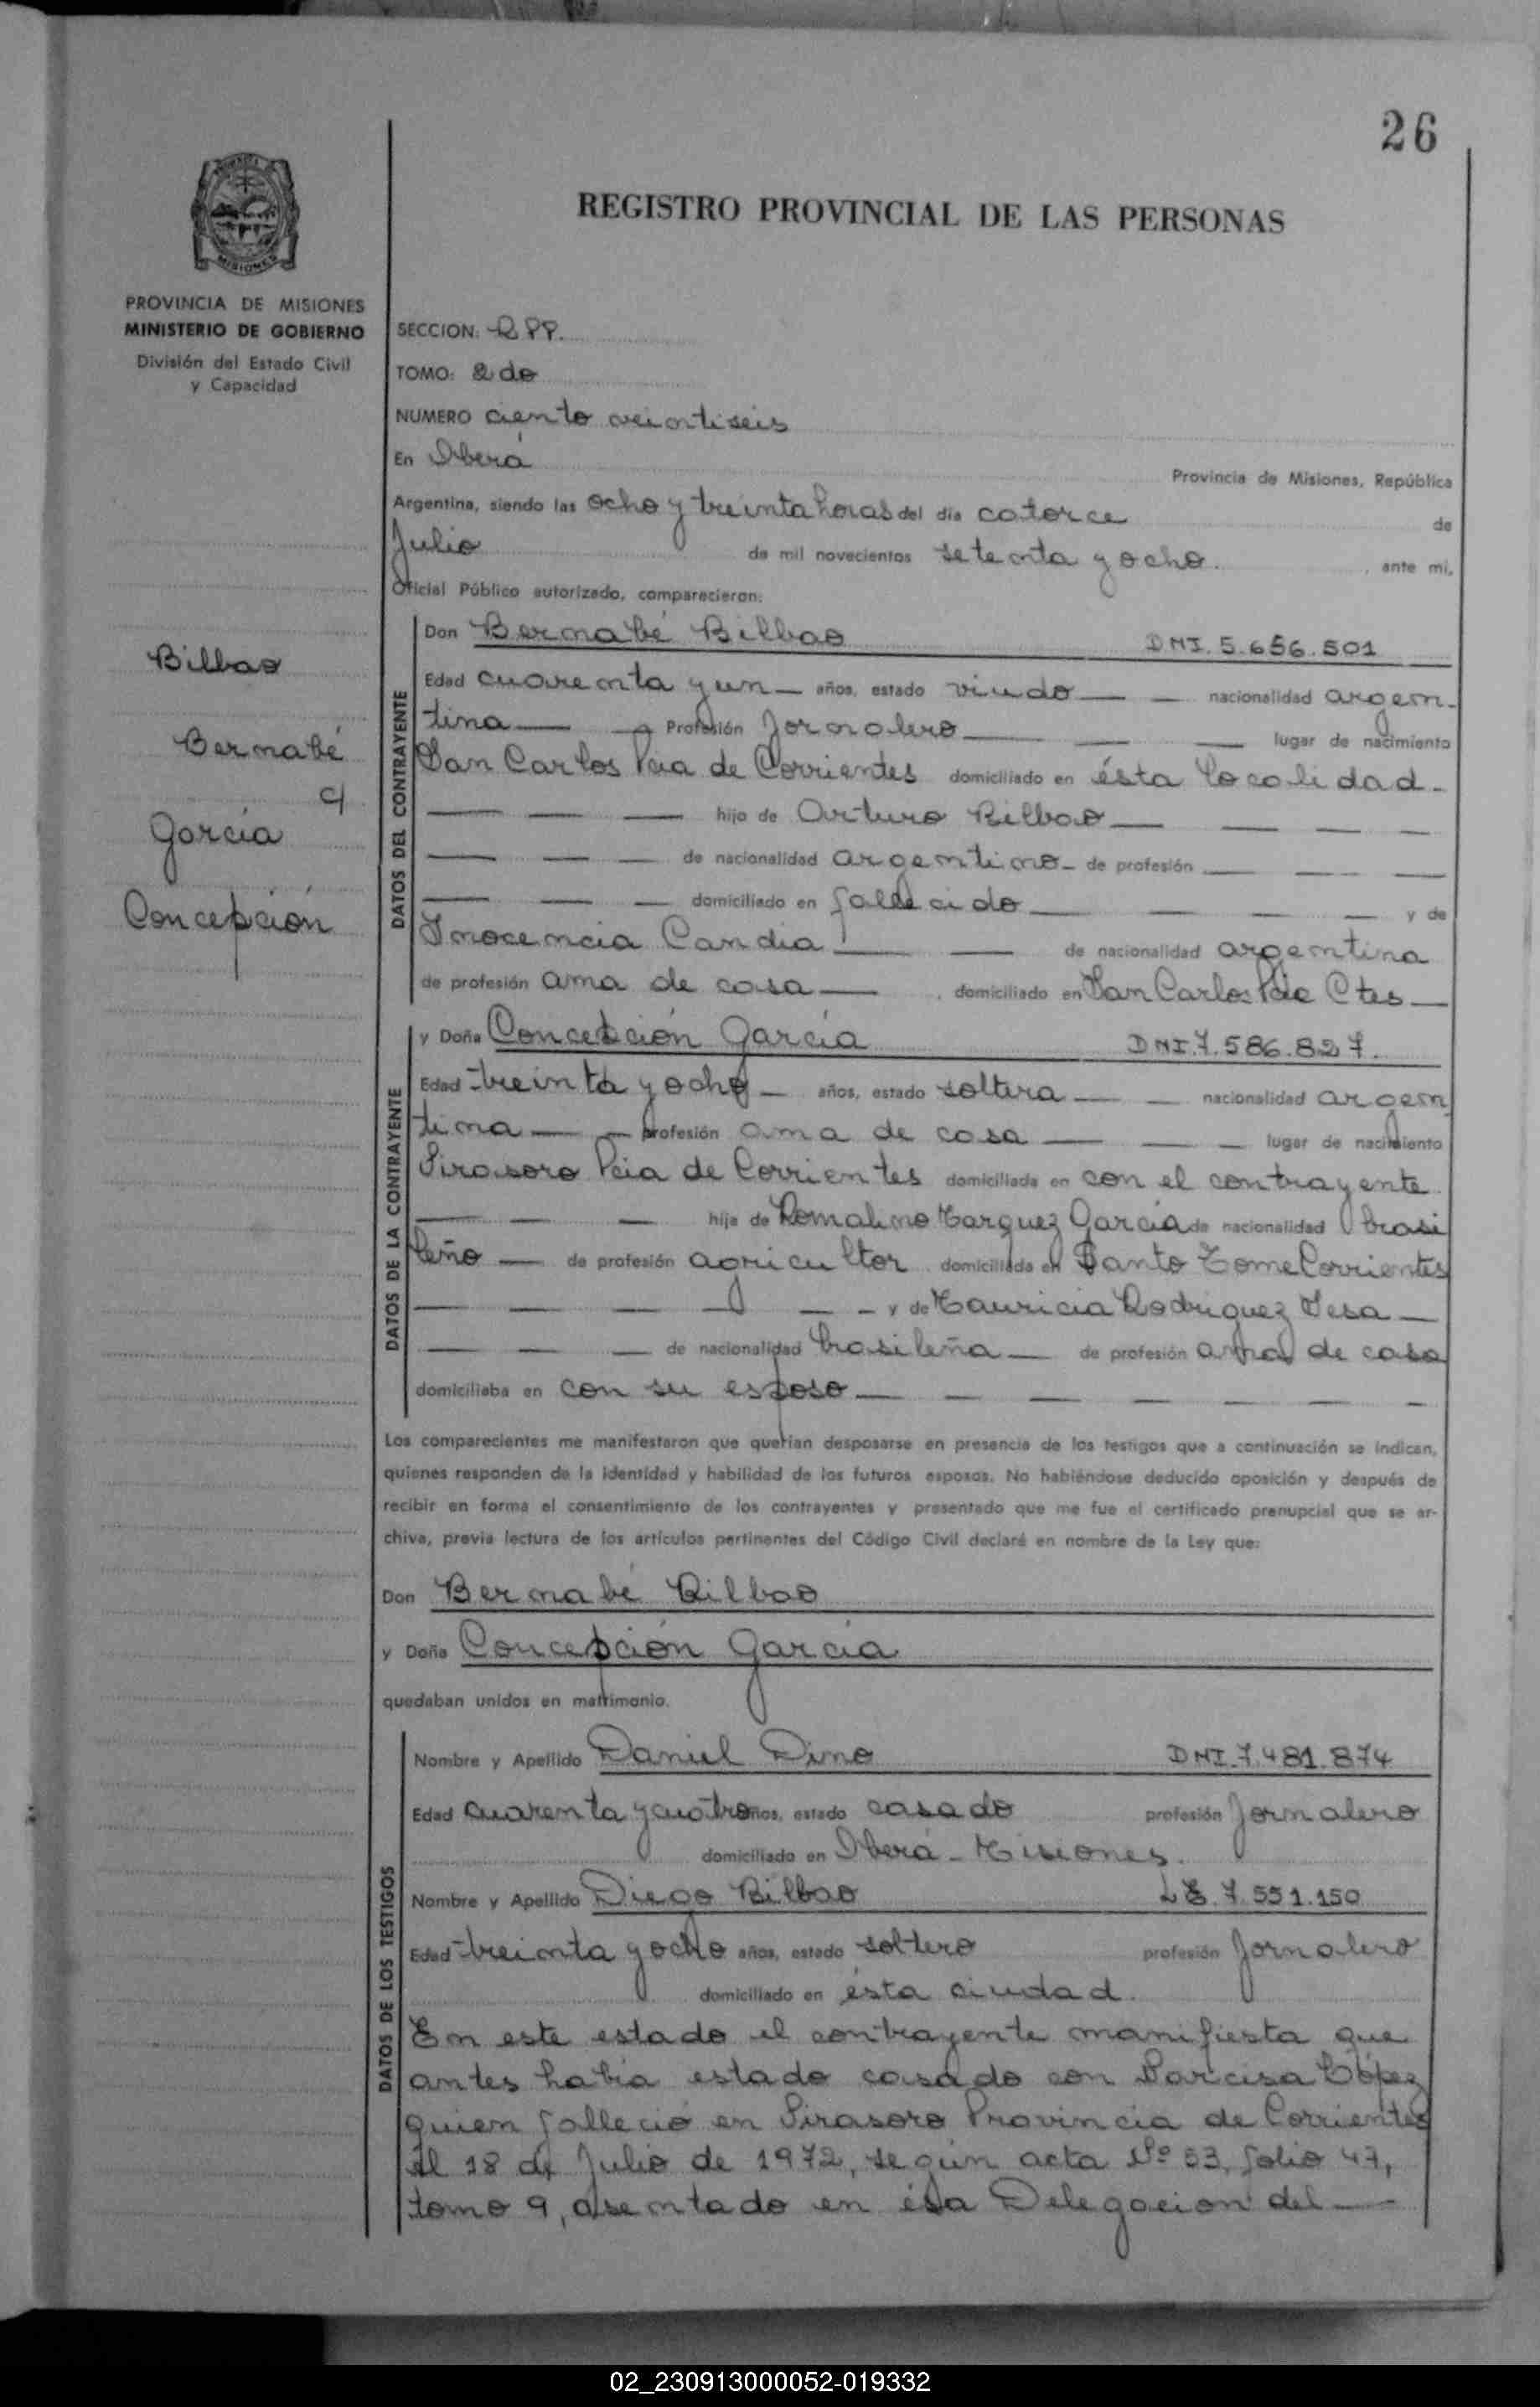 26
REGISTRO PROVINCIAL DE LAS PERSONAS
MISIONES
PROVINCIA DE MISIONES
MINISTERIO DE GOBIERNO
División del Estado Civil
y Capacidad
SECCION: RPP.
TOMO: 2do
NUMERO ciento veintiseis
En Oberá
Provincia de Misiones, República
Argentina, siendo las ocho y treinta horas del día catorce de
Julio de mil novecientos setenta y ocho. , ante mi,
Oficial Público autorizado, comparecieron:
Bilbao
Bernabé
c/
García
Concepción
DATOS DEL CONTRAYENTE
Don Bernabé Bilbao DNI. 5.656.501
Edad cuarenta y un — años, estado viudo — — nacionalidad argen-
tina — — Profesión Jornalero — — — lugar de nacimiento
San Carlos Pcia de Corrientes domiciliado en ésta localidad -
— — — hijo de Arturo Bilbao — — — —
— — — de nacionalidad argentino - de profesión — — —
— — — domiciliado en fallecido — — — — y de
Inocencia Candia — — de nacionalidad argentina
de profesión ama de casa — , domiciliado en San Carlos Pcia Ctes —
DATOS DE LA CONTRAYENTE
y Doña Concepción García DNI. 7.586.827.
Edad treinta y ocho — años, estado soltera — — nacionalidad argen
tina — — profesión ama de casa — — — lugar de nacimiento
Virasoro Pcia de Corrientes domiciliada en con el contrayente
— — — hija de Romalino Marquez García de nacionalidad brasi
leño — de profesión agricultor domiciliada en Santo Tome Corrientes
— — — — — - y de Mauricia Rodriguez Vesa —
— — — de nacionalidad brasileña — de profesión ama de casa
domiciliaba en con su esposo — — — — — — -
Los comparecientes me manifestaron que querían desposarse en presencia de los testigos que a continuación se indican,
quienes responden de la identidad y habilidad de los futuros esposos. No habiéndose deducido oposición y después de
recibir en forma el consentimiento de los contrayentes y presentado que me fue el certificado prenupcial que se ar-
chiva, previa lectura de los artículos pertinentes del Código Civil declaré en nombre de la Ley que:
Don Bernabé Bilbao
y Doña Concepción García
quedaban unidos en matrimonio.
DATOS DE LOS TESTIGOS
Nombre y Apellido Daniel Dino DNI. 7.481.874
Edad cuarenta y cuatro años, estado casado profesión Jornalero
domiciliado en Oberá - Misiones.
Nombre y Apellido Diego Bilbao LE. 7.551.150
Edad treinta y ocho años, estado soltero profesión Jornalero
domiciliado en ésta ciudad.
En este estado el contrayente manifiesta que
antes había estado casado con Narcisa López
quien falleció en Virasoro Provincia de Corrientes
el 18 de Julio de 1972, según acta Nº 53, folio 47,
tomo 9, asentado en ésa Delegación del —
02_230913000052-019332